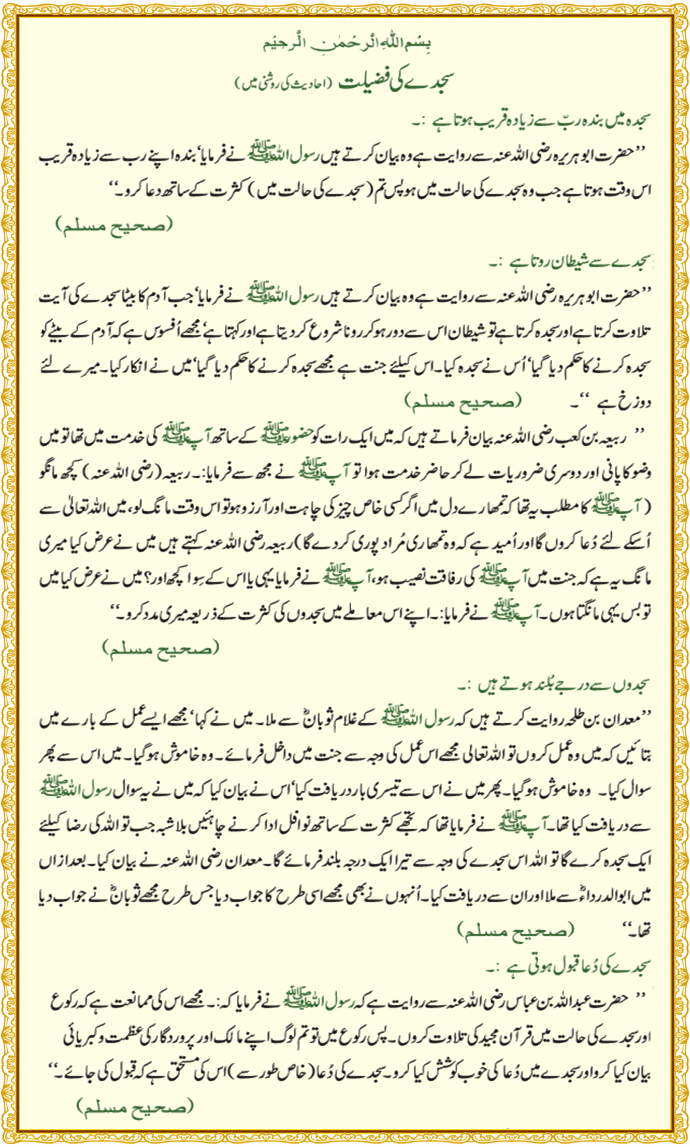 بِسْمِ اللهِ الرَّحْمٰنِ الرَّحِيْم
سجدے کی فضیلت (احادیث کی روشنی میں)
سجدہ میں بندہ ربّ سے زیادہ قریب ہوتا ہے :۔
’’حضرت ابوہریرہ رضی اللہ عنہ سے روایت ہے وہ بیان کرتے ہیں رسول اللہ ﷺ نے فرمایا‘ بندہ اپنے رب سے زیادہ قریب
اس وقت ہوتا ہے جب وہ سجدے کی حالت میں ہو پس تم (سجدے کی حالت میں) کثرت کے ساتھ دعا کرو۔‘‘
(صحیح مسلم)
سجدے سے شیطان روتا ہے :۔
’’حضرت ابوہریرہ رضی اللہ عنہ سے روایت ہے وہ بیان کرتے ہیں رسول اللہ ﷺ نے فرمایا‘ جب آدم کا بیٹا سجدے کی آیت
تلاوت کرتا ہے اور سجدہ کرتا ہے تو شیطان اس سے دور ہو کر رونا شروع کر دیتا ہے اور کہتا ہے‘ مجھے اُفسوس ہے کہ آدم کے بیٹے کو
سجدہ کرنے کا حکم دیا گیا‘ اُس نے سجدہ کیا۔ اس کیلئے جنت ہے مجھے سجدہ کرنے کا حکم دیا گیا‘ میں نے انکار کیا۔ میرے لئے
دوزخ ہے ‘‘۔ (صحیح مسلم)
’’ ربیعہ بن کعب رضی اللہ عنہ بیان فرماتے ہیں کہ میں ایک رات کو حضور ﷺ کے ساتھ آپ ﷺ کی خدمت میں تھا تو میں
وضو کا پانی اور دوسری ضروریات لے کر حاضر خدمت ہوا تو آپ ﷺ نے مجھ سے فرمایا:۔ ربیعہ (رضی اللہ عنہ) کچھ مانگو
(آپ ﷺ کا مطلب یہ تھا کہ تمھارے دل میں اگر کسی خاص چیز کی چاہت اور آرزو ہو تو اس وقت مانگ لو، میں اللہ تعالیٰ سے
اُسکے لئے دُعا کروں گا اور اُمید ہے کہ وہ تمھاری مُراد پوری کر دے گا) ربیعہ رضی اللہ عنہ کہتے ہیں میں نے عرض کیا میری
مانگ یہ ہے کہ جنت میں آپ ﷺ کی رفاقت نصیب ہو، آپ ﷺ نے فرمایا یہی یا اس کے سِوا کچھ اور؟ میں نے عرض کیا میں
تو بس یہی مانگتا ہوں۔ آپ ﷺ نے فرمایا:۔ اپنے اس معاملے میں سجدوں کی کثرت کے ذریعہ میری مدد کرو۔‘‘
(صحیح مسلم)
سجدوں سے درجے بُلند ہوتے ہیں :۔
’’معدان بن طلحہ روایت کرتے ہیں کہ رسول اللہ ﷺ کے غلام ثوبانؓ سے ملا۔ میں نے کہا‘ مجھے ایسے عمل کے بارے میں
بتائیں کہ میں وہ عمل کروں تو اللہ تعالی مجھے اس عمل کی وجہ سے جنت میں داخل فرمائے۔ وہ خاموش ہو گیا۔ میں اس سے پھر
سوال کیا۔ وہ خاموش ہو گیا۔ پھر میں نے اس سے تیسری بار دریافت کیا‘ اس نے بیان کیا کہ میں نے یہ سوال رسول اللہ ﷺ
سے دریافت کیا تھا۔ آپ ﷺ نے فرمایا تھا کہ تجھے کثرت کے ساتھ نوافل ادا کرنے چاہئیں بلاشبہ جب تو اللہ کی رضا کیلئے
ایک سجدہ کرے گا تو اللہ اس سجدے کی وجہ سے تیرا ایک درجہ بلند فرمائے گا۔ معدان رضی اللہ عنہ نے بیان کیا۔ بعد ازاں
میں ابوالدرداءؓ سے ملا اور ان سے دریافت کیا۔ اُنہوں نے بھی مجھے اسی طرح کا جواب دیا جس طرح مجھے ثوبانؓ نے جواب دیا
تھا۔‘‘ (صحیح مسلم)
سجدے کی دُعا قبول ہوتی ہے :۔
’’ حضرت عبداللہ بن عباس رضی اللہ عنہ سے روایت ہے کہ رسول اللہ ﷺ نے فرمایا کہ:۔ مجھے اس کی ممانعت ہے کہ رکوع
اور سجدے کی حالت میں قرآن مجید کی تلاوت کروں۔ پس رکوع میں تو تم لوگ اپنے مالک اور پروردگار کی عظمت و کبریائی
بیان کیا کرو اور سجدے میں دُعا کی خوب کوشش کیا کرو۔ سجدے کی دُعا (خاص طور سے) اس کی مستحق ہے کہ قبول کی جائے۔‘‘
(صحیح مسلم)